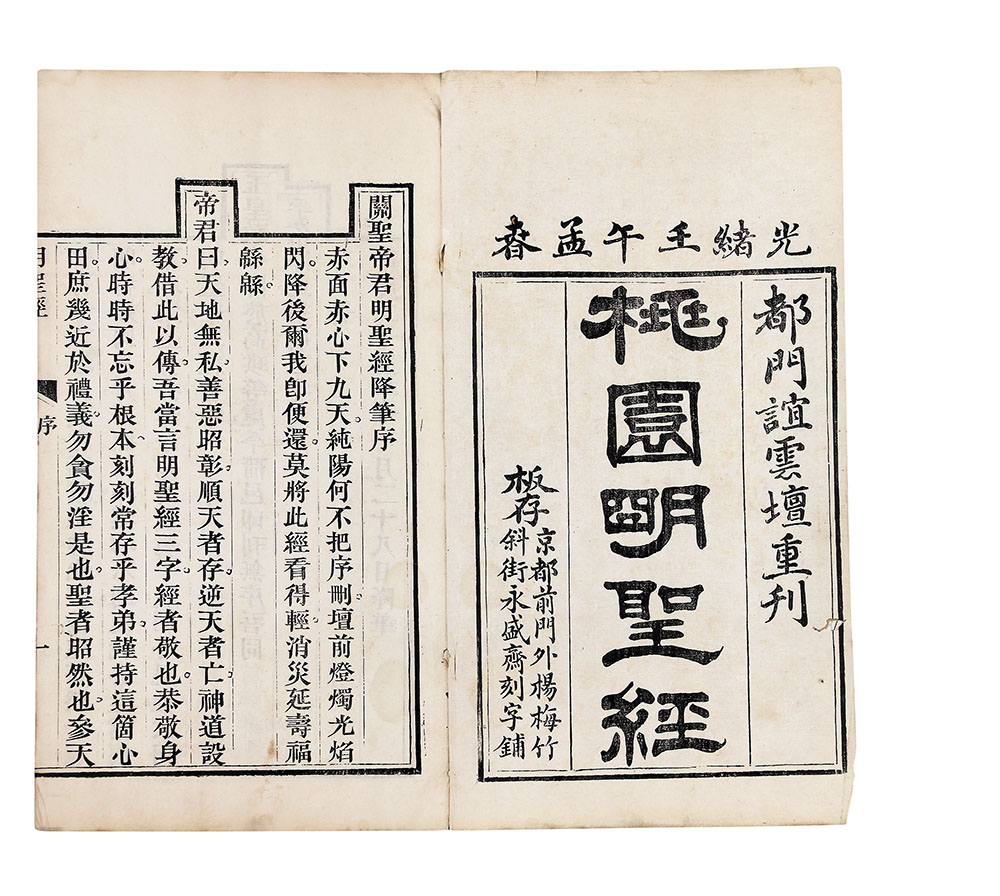 光緒壬午孟春
都門誼雲壇重刊
桃園明聖經
板存京都前門外楊梅竹
斜街永盛齋刻字鋪
關聖帝君明聖經降筆序
赤面赤心下九天。純陽何不把序刪。壇前燈燭光焰
閃。降後爾我卽便還。莫將此經看得輕。消災延壽福
緜緜。
帝君曰。天地無私。善惡昭彰。順天者存。逆天者亡。神道設
教。借此以傳。吾當言明聖經三字。經者敬也。恭敬身
心。時時不忘乎根本。刻刻常存乎孝弟。謹持這箇心
田。庶幾近於禮義。勿貪勿淫是也。聖者昭然也。參天
明聖經
序
一